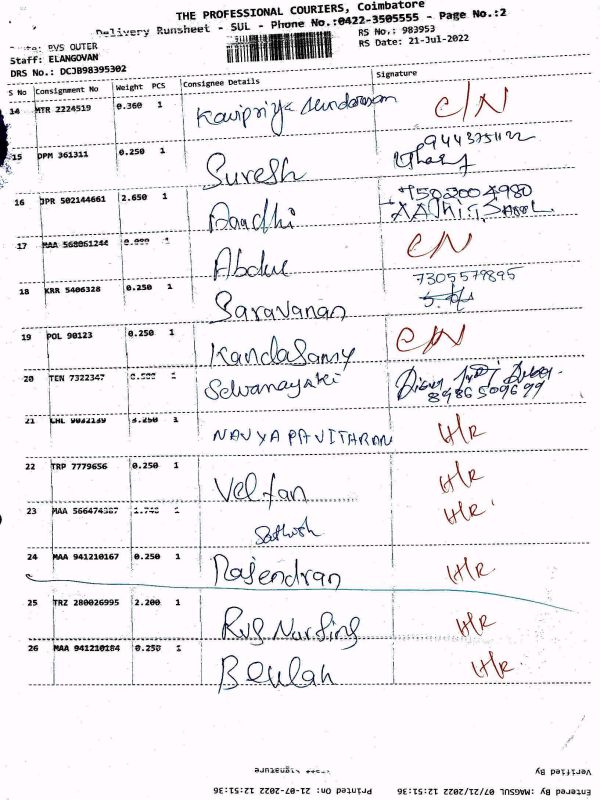 THE PROFESSIONAL COURIERS, Coimbatore
Delivery Runsheet - SUL - Phone No.:0422-3505555 - Page No.:2
RS No.: 983953
RS Date: 21-Jul-2022
RVS OUTER
Staff: ELANGOVAN
DRS No.: DCJB98395302
S No Consignment No Weight PCS Consignee Details Signature
14 MTR 2224519 0.360 1 Kavipriya Sundaram C/N
15 DPM 361311 0.250 1 Suresh
16 JPR 502144661 2.650 1 7502004980
17 MAA 568061244 1 Abdul C/N
18 KRR 5406328 0.250 1 Saravanan 7305579895
19 POL 90123 0.250 1 Kandasamy C/N
20 TEN 7322347 1 Selvanayaki
8986509699
21 1 NAVYA PAVITHARAN H/R
22 TRP 7779656 0.250 1 H/R
23 MAA Sathish H/R
24 MAA 941210167 0.250 1 Rajendran H/R
25 TRZ 280026995 2.200 1 Rvs Nursing H/R
26 MAA 941210184 0.250 1 Beulah H/R
Signature
Verified By
Printed On: 21-07-2022 12:51:36
Entered By :MAGSUL 07/21/2022 12:51:36